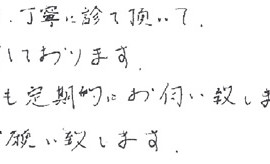 .丁寧に診て頂いて.
しております.
も定期的にお伺い致しま
願い致します.